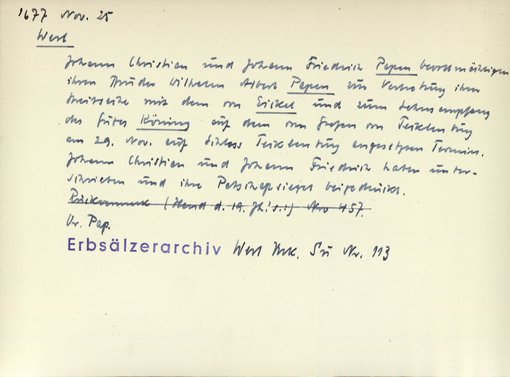 1677 Nov. 25
Werl
Johann Christian und Johann Friedrich Papen bevollmächtigen
ihren Bruder Wilhelm Albert Papen zur Vertretung ihrer
Streitsache mit dem von Sickel und zum Lehnsempfang
des Gutes Köning auf dem vom Grafen von Tecklenburg
am 29. Nov. auf Schloss Tecklenburg angesetzten Termin.
Johann Christian und Johann Friedrich haben unter-
schrieben und ihre Petschaftsiegel beigedrückt.
Rückvermerk (Hand d. 19. Jh.s:) Nro 457.
Or. Pap.
Erbsälzerarchiv Werl Urk. Nr. 113